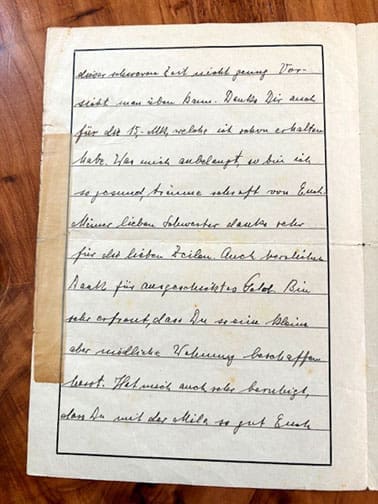 dieser schweren Zeit nicht genug Vor-
sicht man üben kann. Danke Dir auch
für die 15,-Mk, welche ich schon erhalten
habe. Was mich anbelangt, so bin ich
so gesund, träume sehr oft von Euch.
Meiner lieben Schwester danke sehr
für die lieben Zeilen. Auch herzlichen
Dank für ausgeschicktes Geld. Bin
sehr erfreut, dass Du so eine kleine
aber niedliche Wohnung beschaffen
hast. Hat mich auch sehr beruhigt,
dass Du mit der Mila so gut Euch